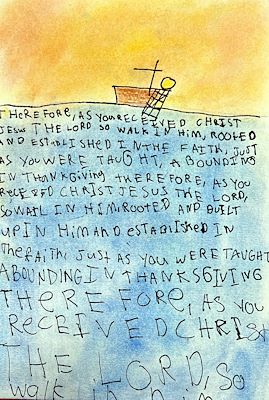 THEREFORE, AS YOU RECEIVED CHRIST
JESUS THE LORD SO WALK IN HIM, ROOTED
AND ESTABLISHED IN THE FAITH, JUST
AS YOU WERE TAUGHT, ABOUNDING
IN THANKSGIVING THEREFORE, AS YOU
RECEIVED CHRIST JESUS THE LORD,
SO WALK IN HIM ROOTED AND BUILT
UP IN HIM AND ESTABLISHED IN
The FAITH, JUST AS YOU WERE TAUGHT
ABOUNDING IN THANKSGIVING
THERE FORE, AS YOU
RECEIVED CHRIST
THE LORD, SO
WALK in him